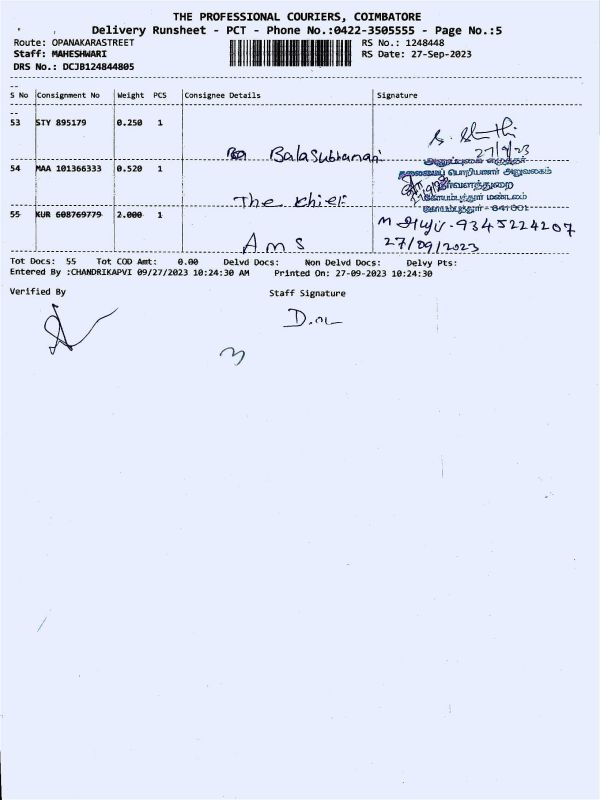 THE PROFESSIONAL COURIERS, COIMBATORE
Delivery Runsheet - PCT - Phone No.:0422-3505555 - Page No.:5
Route: OPANAKARASTREET RS No.: 1248448
Staff: MAHESHWARI RS Date: 27-Sep-2023
DRS No.: DCJB124844805
S No Consignment No Weight PCS Consignee Details Signature
53 STY 895179 0.250 1
27/9/23
Balasubramani
54 MAA 101366333 0.520 1
தலைமைப் பொறியாளர் அலுவலகம்
நீர்வளத்துறை
கோயம்புத்தூர் மண்டலம்
கோயம்புத்தூர் - 641 001
The chief
55 KUR 608769779 2.000 1
9345224207
AMS 27/09/2023
Tot Docs: 55 Tot COD Amt: 0.00 Delvd Docs: Non Delvd Docs: Delvy Pts:
Entered By :CHANDRIKAPVI 09/27/2023 10:24:30 AM Printed On: 27-09-2023 10:24:30
Verified By Staff Signature